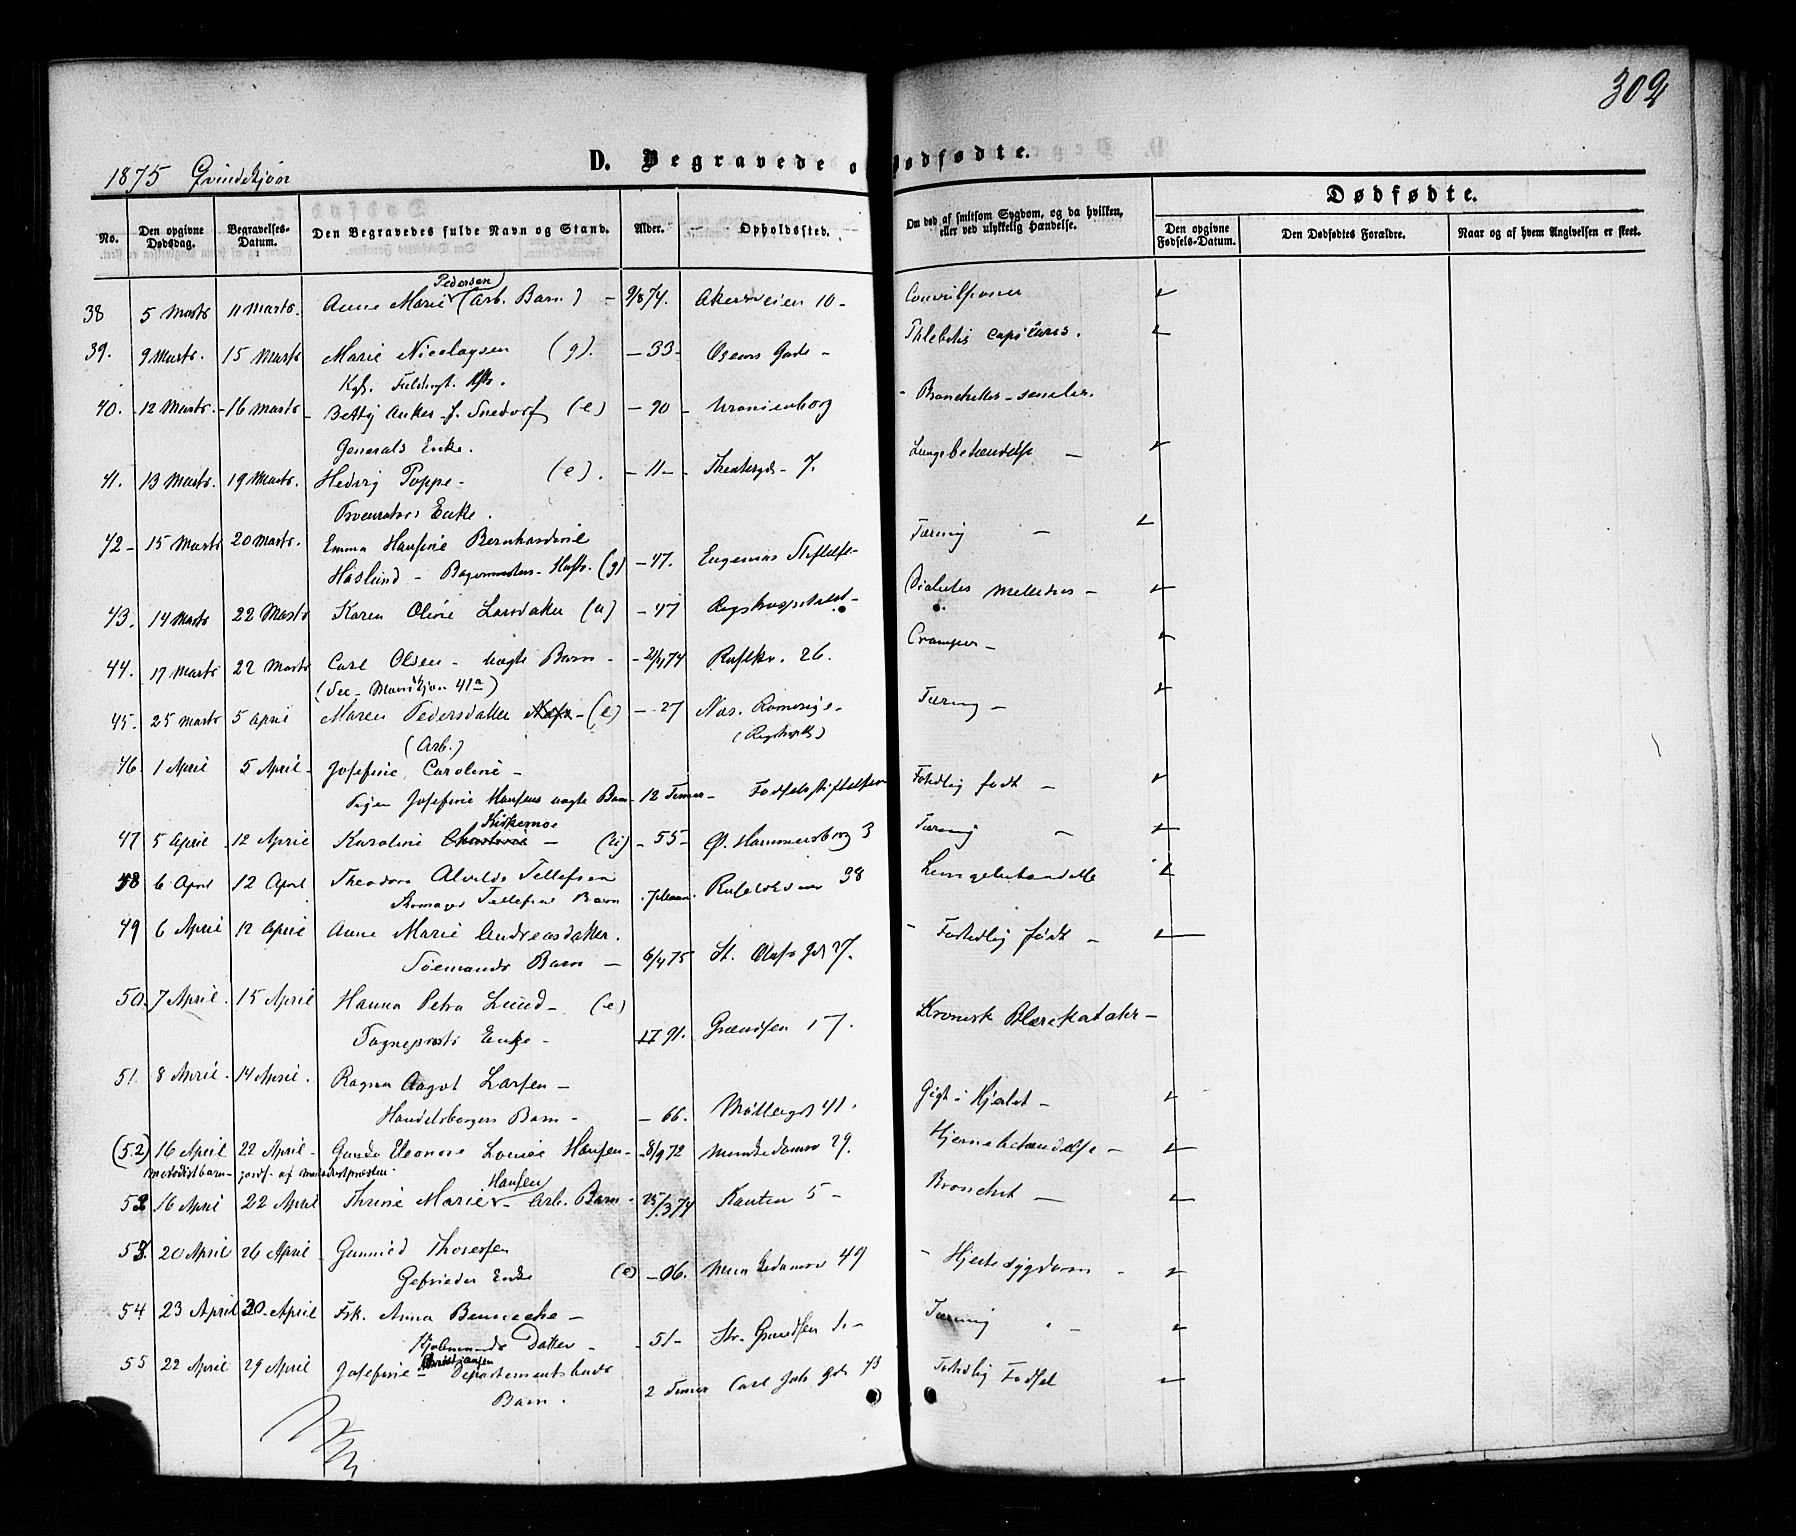 302
1875 Qvindekjøn
D. Begravede o
ødfødte.
No.
Den opgivne Dødsdag.
Begravelses-Datum.
Den Begravedes fulde Navn og Stand.
Alder.
Opholdssted.
Om død af smitsom Sygdom, og da hvilken, eller ved ulykkelig Hændelse.
Dødfødte.
Den opgivne Fødsels-Datum.
Den Dødfødtes Forældre.
Naar og af hvem Angivelsen er skeet.
Pedersen
38 5 Marts 11 Marts. Anne Marie (Arb. Barn) - 9/8 74. Akersveien 10 - Convulsioner
39. 9 Marts. 15 Marts Marie Nicolaysen (g). - 33 - Osears Gade - Phlebitis
40. 12 Marts. 16 Marts Betty Anker f. Snedorf (e) - 90 - Uranienborg - Bronchitis - senilis.
Generals Enke.
41. 13 Marts. 19 Marts. Hedvig Poppe - (e). - 11 - Theatergd - 7. Lungebetændelse -
Procurators Enke.
42 - 15 Marts 20 Marts. Emma Hansine Bernhardine
Haslund - Bagermesters - Hustr. (g) - 47. Eugenias Stiftelse - Tæring -
43. 14 Marts 22 Marts Karen Oline Larsdatter (u) - 47 Rigshospitalet - Diabetes Mellitus -
44. 17 Marts 22 Marts Carl Olsen - uægte Barn - 2/11 74 Rusløkv. 26. Cramper -
(See - Mandkjøn 41a)
45. 25 Marts 5 April Maren Pedersdatter (e) - 27 Nas. Romerige - Tæring -
(Arb.) (Rigshospit)
46. 1 April 5 April - Josefine, Caroline -
Pigen Josefine Hansens uægte Barn - 12 Timer - Fødselsstiftelsen Fortidlig født -
Kirkemoe
47 5 April 12 April Karoline - (u) - 55 - Ø. Hammersborg 3 Tæring -
48 6 April 12 April Theodora Alvilde Tellefsen
Skomager Tellefsen Barn . 7 Maan. Rusløkveien 38 Lungebetændelse
49 6 April 12 April Anne Marie Andreasdatter.
Sømands Barn - 6/4 75 St. Olafs Gd 27. - Fortidlig født -
50. 7 April. 15 April Hanna Petra Lund - (e)
Sogneprests Enke - 91. Grændsen 17. Kronisk Blærekatahr -
51. 8 April - 14 April. Ragna Aagot Larsen -
Handelsborgers Barn - - 66. Møllergd 41. Gigt i Hjertet -
(52) 16 April 22 April - Gunda Eleonore Lovise Hansen - 8/9 72 Munkedamsv 29. Hjernebetændelse -
Metodistbarn - jordf. af Metodistpræsten.
Hansen
52 16 April 22 April Thrine Marie - Arb. Barn - 25/3 74 Kanten 5 - Bronchit -
53. 20 April 26 April - Gunnild Thoresen
Gefreider Enke (e) - 66. Munkedamsv 49 - Hjertesygdom -
54 23 April 30 April Frk. Anna Benneche -
Kjøbmands Datter - - 51 - Str. Grændsen 1. - Tæring -
Christiansen
55 22 April 29 April Josefine Departementsbuds
Barn. 2 Timer Carl Joh. Gd 43 Fortidlig Fødsel